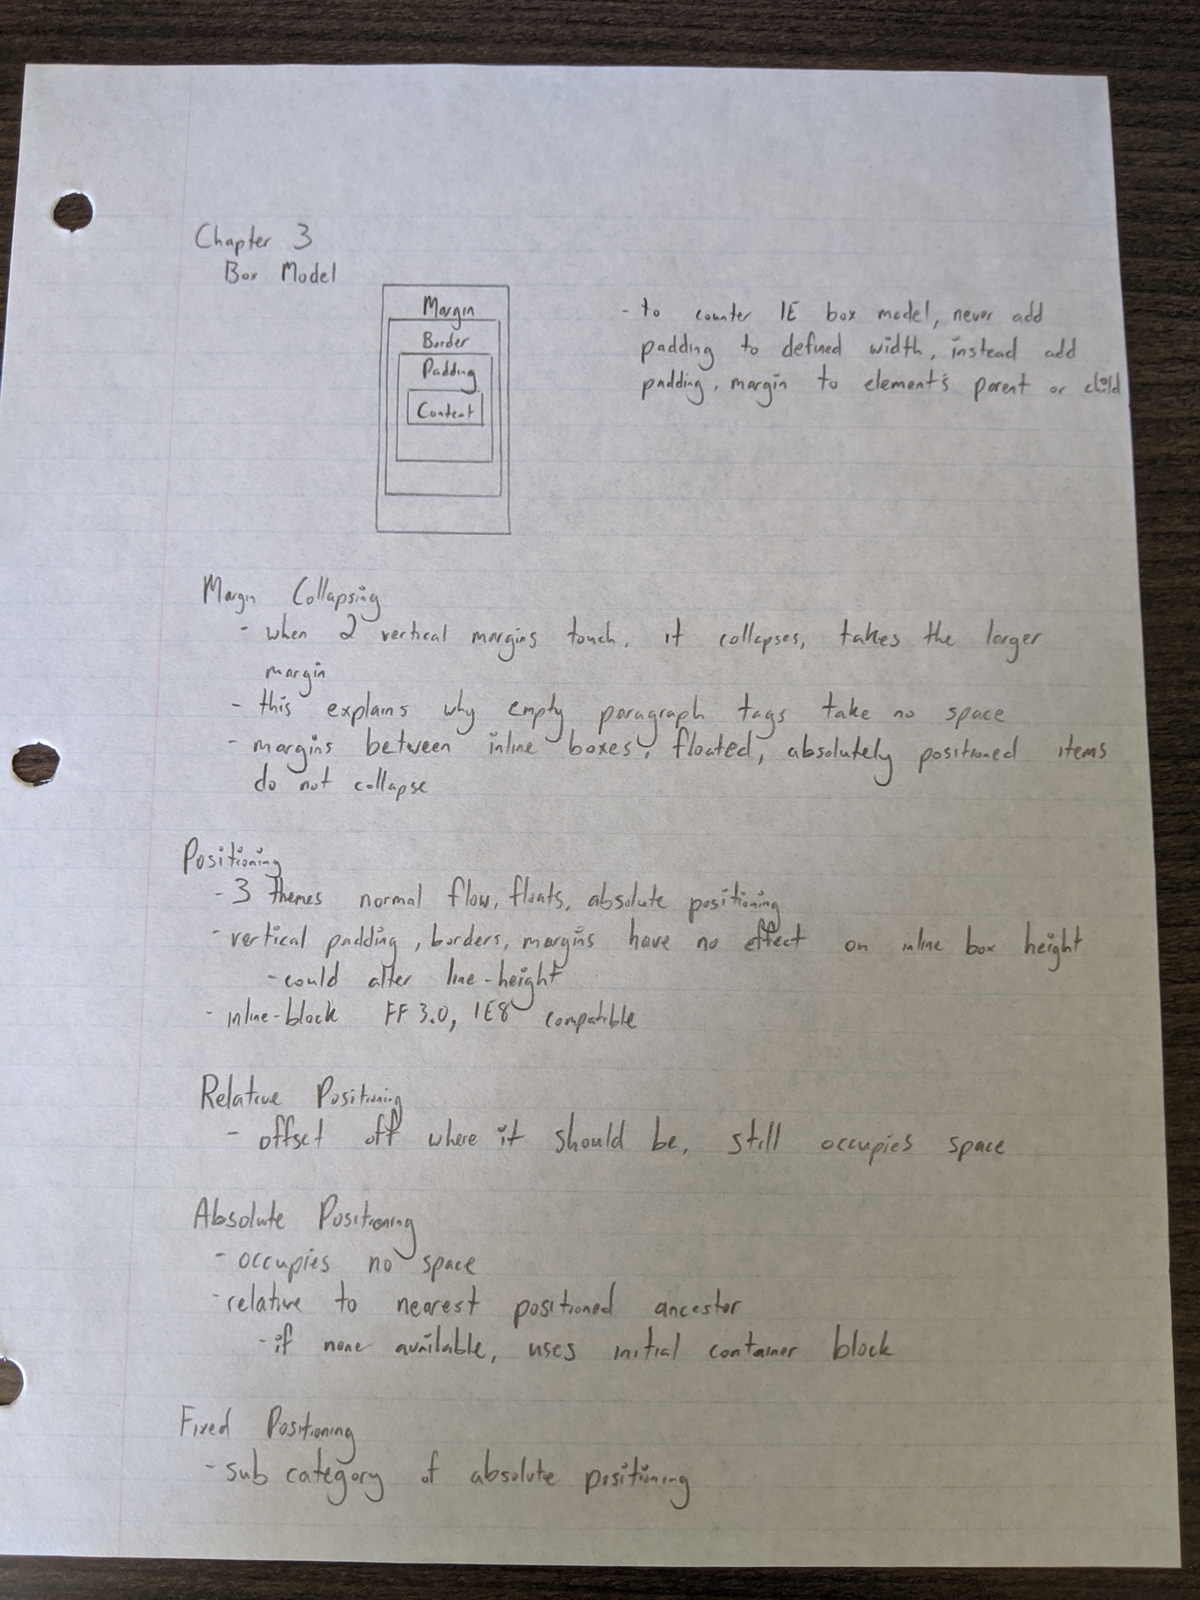 Chapter 3
Box Model
Margin
Border
Padding
Content
- to counter IE box model, never add
padding to defined width, instead add
padding, margin to element's parent or child
Margin Collapsing
- when 2 vertical margins touch, it collapses, takes the larger
margin
- this explains why empty paragraph tags take no space
- margins between inline boxes, floated, absolutely positioned items
do not collapse
Positioning
- 3 themes normal flow, floats, absolute positioning
- vertical padding, borders, margins have no effect on inline box height
- could alter line-height
- inline-block FF 3.0, IE8 compatible
Relative Positioning
- offset off where it should be, still occupies space
Absolute Positioning
- occupies no space
- relative to nearest positioned ancestor
- if none available, uses initial container block
Fixed Positioning
- sub category of absolute positioning